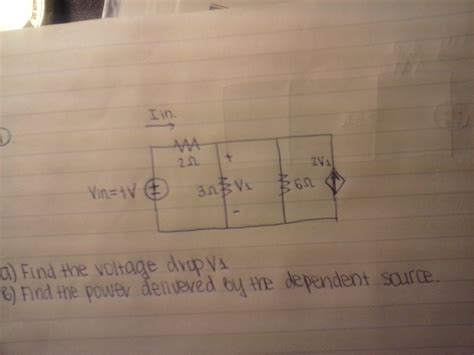 Iin
2Ω
+
2V1
Vin=1V
3Ω
V1
6Ω
-
a) Find the voltage drop V1
B) Find the power denvered by the dependent source.